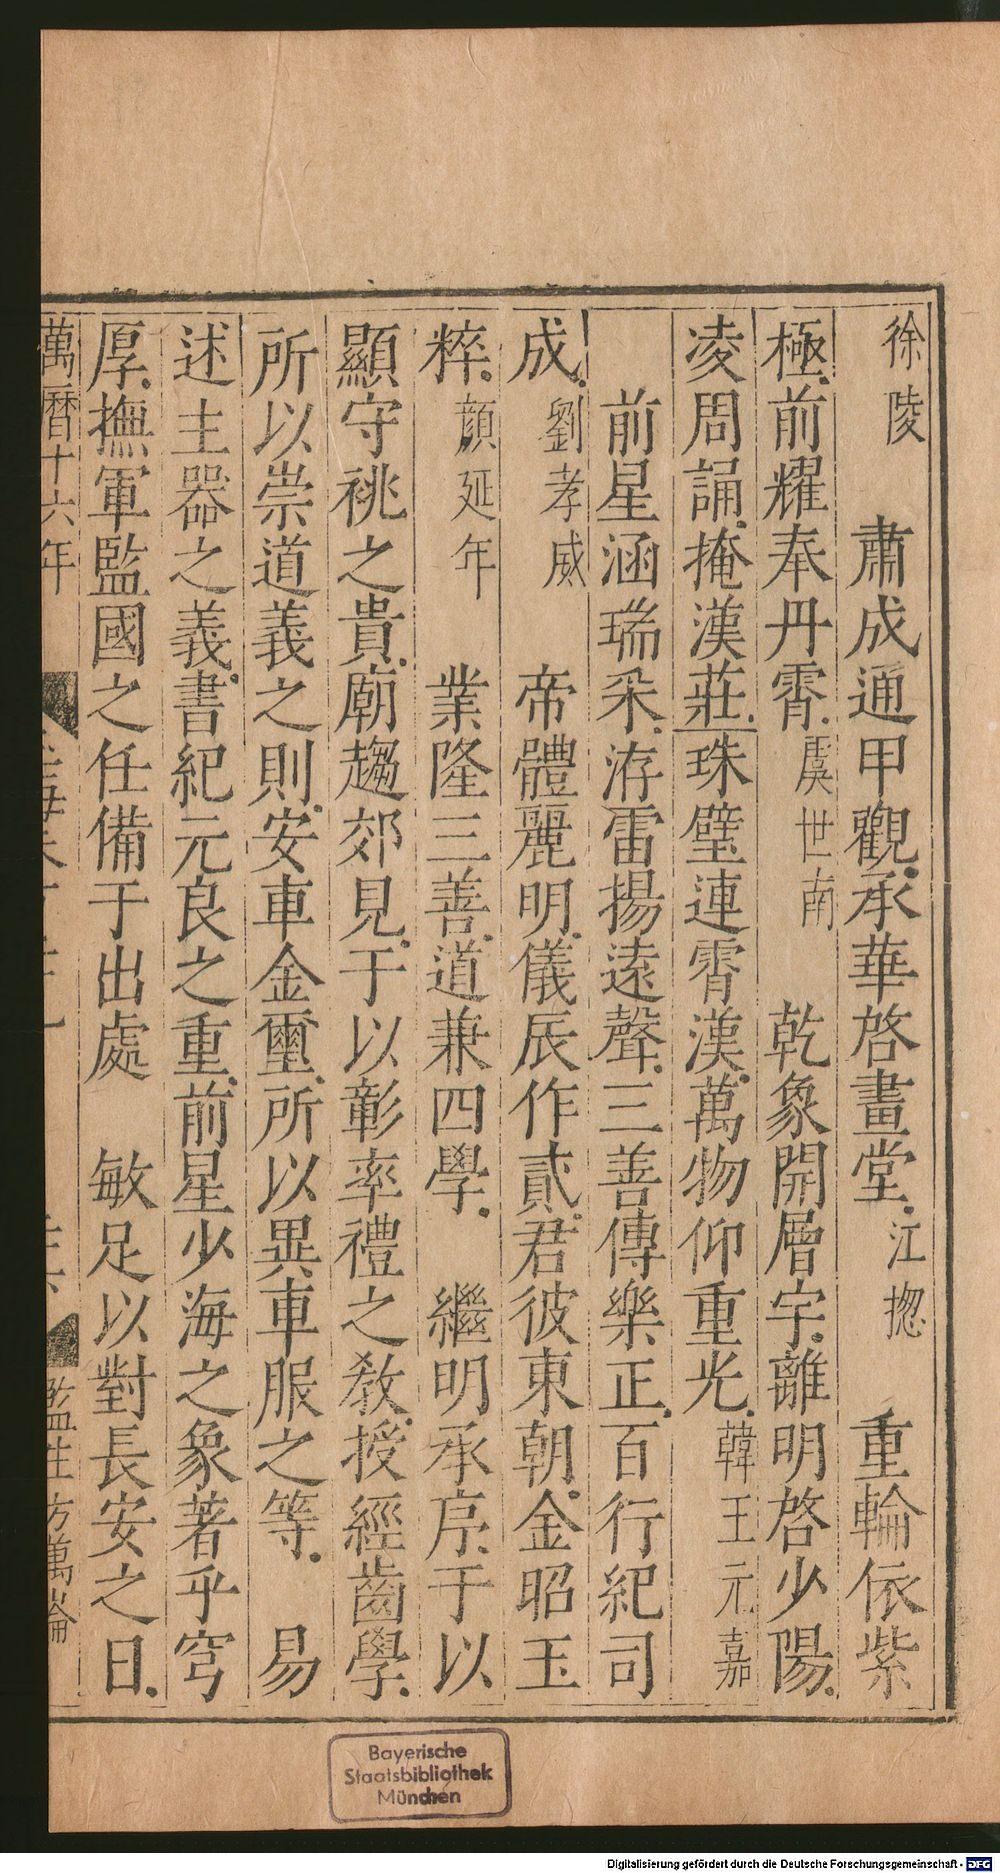 徐陵　肅成通甲觀承華啓畫堂江揔　重輪依紫
極前耀奉丹霄虞世南　乾象開層宇離明啓少陽
凌周誦掩漢莊珠璧連霄漢萬物仰重光韓王元嘉
前星涵瑞采洊雷揚遠聲三善傳樂正百行紀司
成劉孝威　帝體麗明儀辰作貳君彼東朝金昭玉
粹顔延年　業隆三善道兼四學　繼明承序于以
顯守祧之貴廟趨郊見于以彰率禮之教授經齒學
所以崇道義之則安車金璽所以異車服之等　易
述主器之義書紀元良之重前星少海之象著乎穹
厚撫軍監國之任備于出處　敏足以對長安之日
萬曆十六年
監生方萬崙
Bayerische
Staatsbibliothek
München
Digitalisierung gefördert durch die Deutsche Forschungsgemeinschaft - DFG